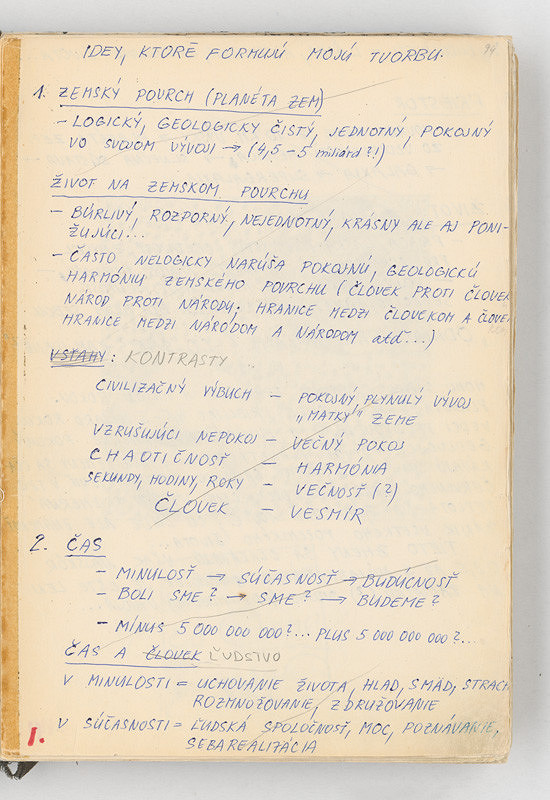 94
IDEY, KTORÉ FORMUJÚ MOJU TVORBU.
1. ZEMSKÝ POVRCH (PLANÉTA ZEM)
- LOGICKÝ, GEOLOGICKY ČISTÝ, JEDNOTNÝ, POKOJNÝ
VO SVOJOM VÝVOJI → (4,5 – 5 miliárd?!)
ŽIVOT NA ZEMSKOM POVRCHU
- BÚRLIVÝ, ROZPORNÝ, NEJEDNOTNÝ, KRÁSNY ALE AJ PONI-
ŽUJÚCI...
- ČASTO NELOGICKY NARÚŠA POKOJNÚ, GEOLOGICKÚ
HARMÓNIU ZEMSKÉHO POVRCHU (ČLOVEK PROTI ČLOVEK
NÁROD PROTI NÁRODU; HRANICE MEDZI ČLOVEKOM A ČLOVE
HRANICE MEDZI NÁRODOM A NÁRODOM atď...)
VSŤAHY: KONTRASTY
CIVILIZAČNÝ VÝBUCH – POKOJNÝ, PLYNULÝ VÝVOJ
„MATKY" ZEME
VZRUŠUJÚCI NEPOKOJ – VEČNÝ POKOJ
CHAOTIČNOSŤ – HARMÓNIA
SEKUNDY, HODINY, ROKY – VEČNOSŤ (?)
ČLOVEK – VESMÍR
2. ČAS
- MINULOSŤ → SÚČASNOSŤ → BUDÚCNOSŤ
- BOLI SME? → SME? → BUDEME?
- MÍNUS 5 000 000 000?... PLUS 5 000 000 000?...
ČAS A ČLOVEK ĽUDSTVO
V MINULOSTI = UCHOVANIE ŽIVOTA, HLAD, SMÄD, STRACH
ROZMNOŽOVANIE, ZDRUŽOVANIE
V SÚČASNOSTI = ĽUDSKÁ SPOLOČNOSŤ, MOC, POZNÁVANIE,
SEBAREALIZÁCIA
1.